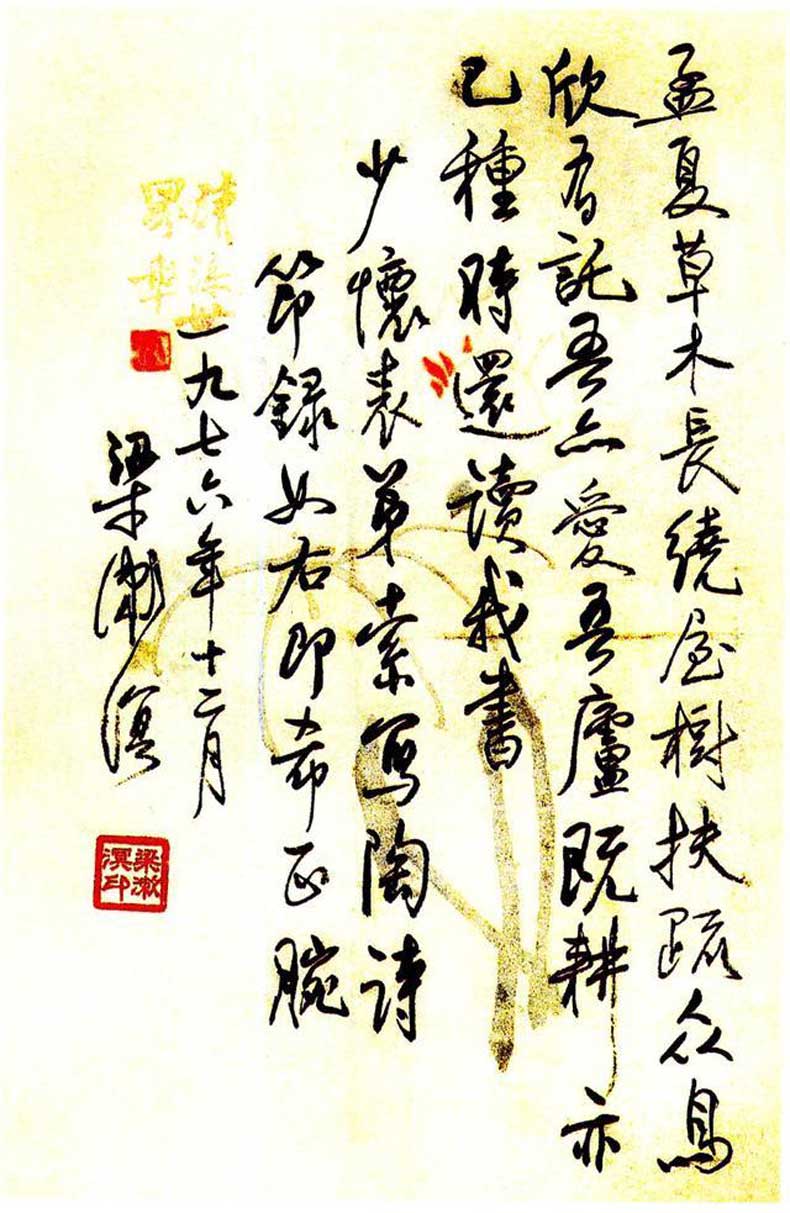 孟夏草木長繞屋樹扶疏众鳥
欣有託吾亦愛吾廬既耕亦
已種時還读我書
少懷表弟索写陶詩
節録如右即希正腕
一九七六年十二月
梁漱溟
梁漱溟印